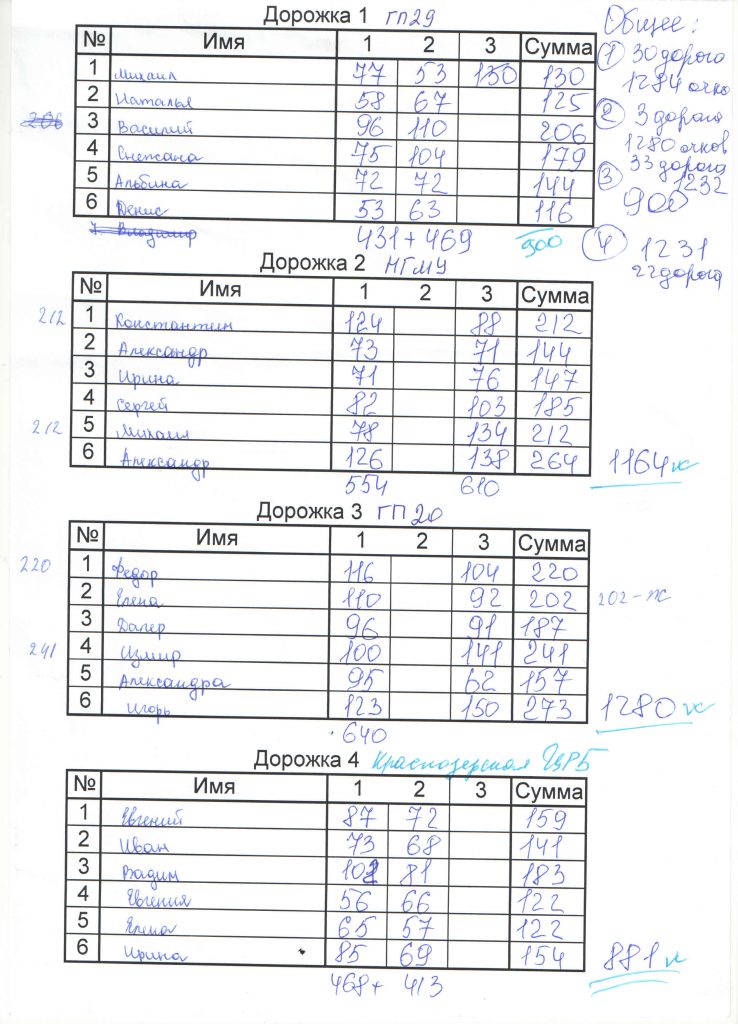 Дорожка 1 ГП29
№ Имя 1 2 3 Сумма
1 Михаил 77 53 130 130
2 Наталья 58 67 125
206 3 Василий 96 110 206
4 Снежана 75 104 179
5 Альбина 72 72 144
6 Денис 53 63 116
7. Владимир 431 + 469 900
Общее:
1 30 дорога
1284 очко
2 3 дорога
1280 очков
33 дорога
3 1232
900
4 1231
22 дорога
Дорожка 2 НГМУ
№ Имя 1 2 3 Сумма
212 1 Константин 124 88 212
2 Александр 73 71 144
3 Ирина 71 76 147
4 Сергей 82 103 185
212 5 Михаил 78 134 212
6 Александр 126 138 264 1164
554 610
Дорожка 3 ГП20
№ Имя 1 2 3 Сумма
220 1 Федор 116 104 220
2 Елена 110 92 202 202-ж
3 Далер 96 91 187
241 4 Измир 100 141 241
5 Александра 95 62 157
6 Игорь 123 150 273 1280
640
Дорожка 4 Краснозерская ЦРБ
№ Имя 1 2 3 Сумма
1 Евгений 87 72 159
2 Иван 73 68 141
3 Вадим 102 81 183
4 Евгения 56 66 122
5 Елена 65 57 122
6 Ирина 85 69 154 881
468 + 413